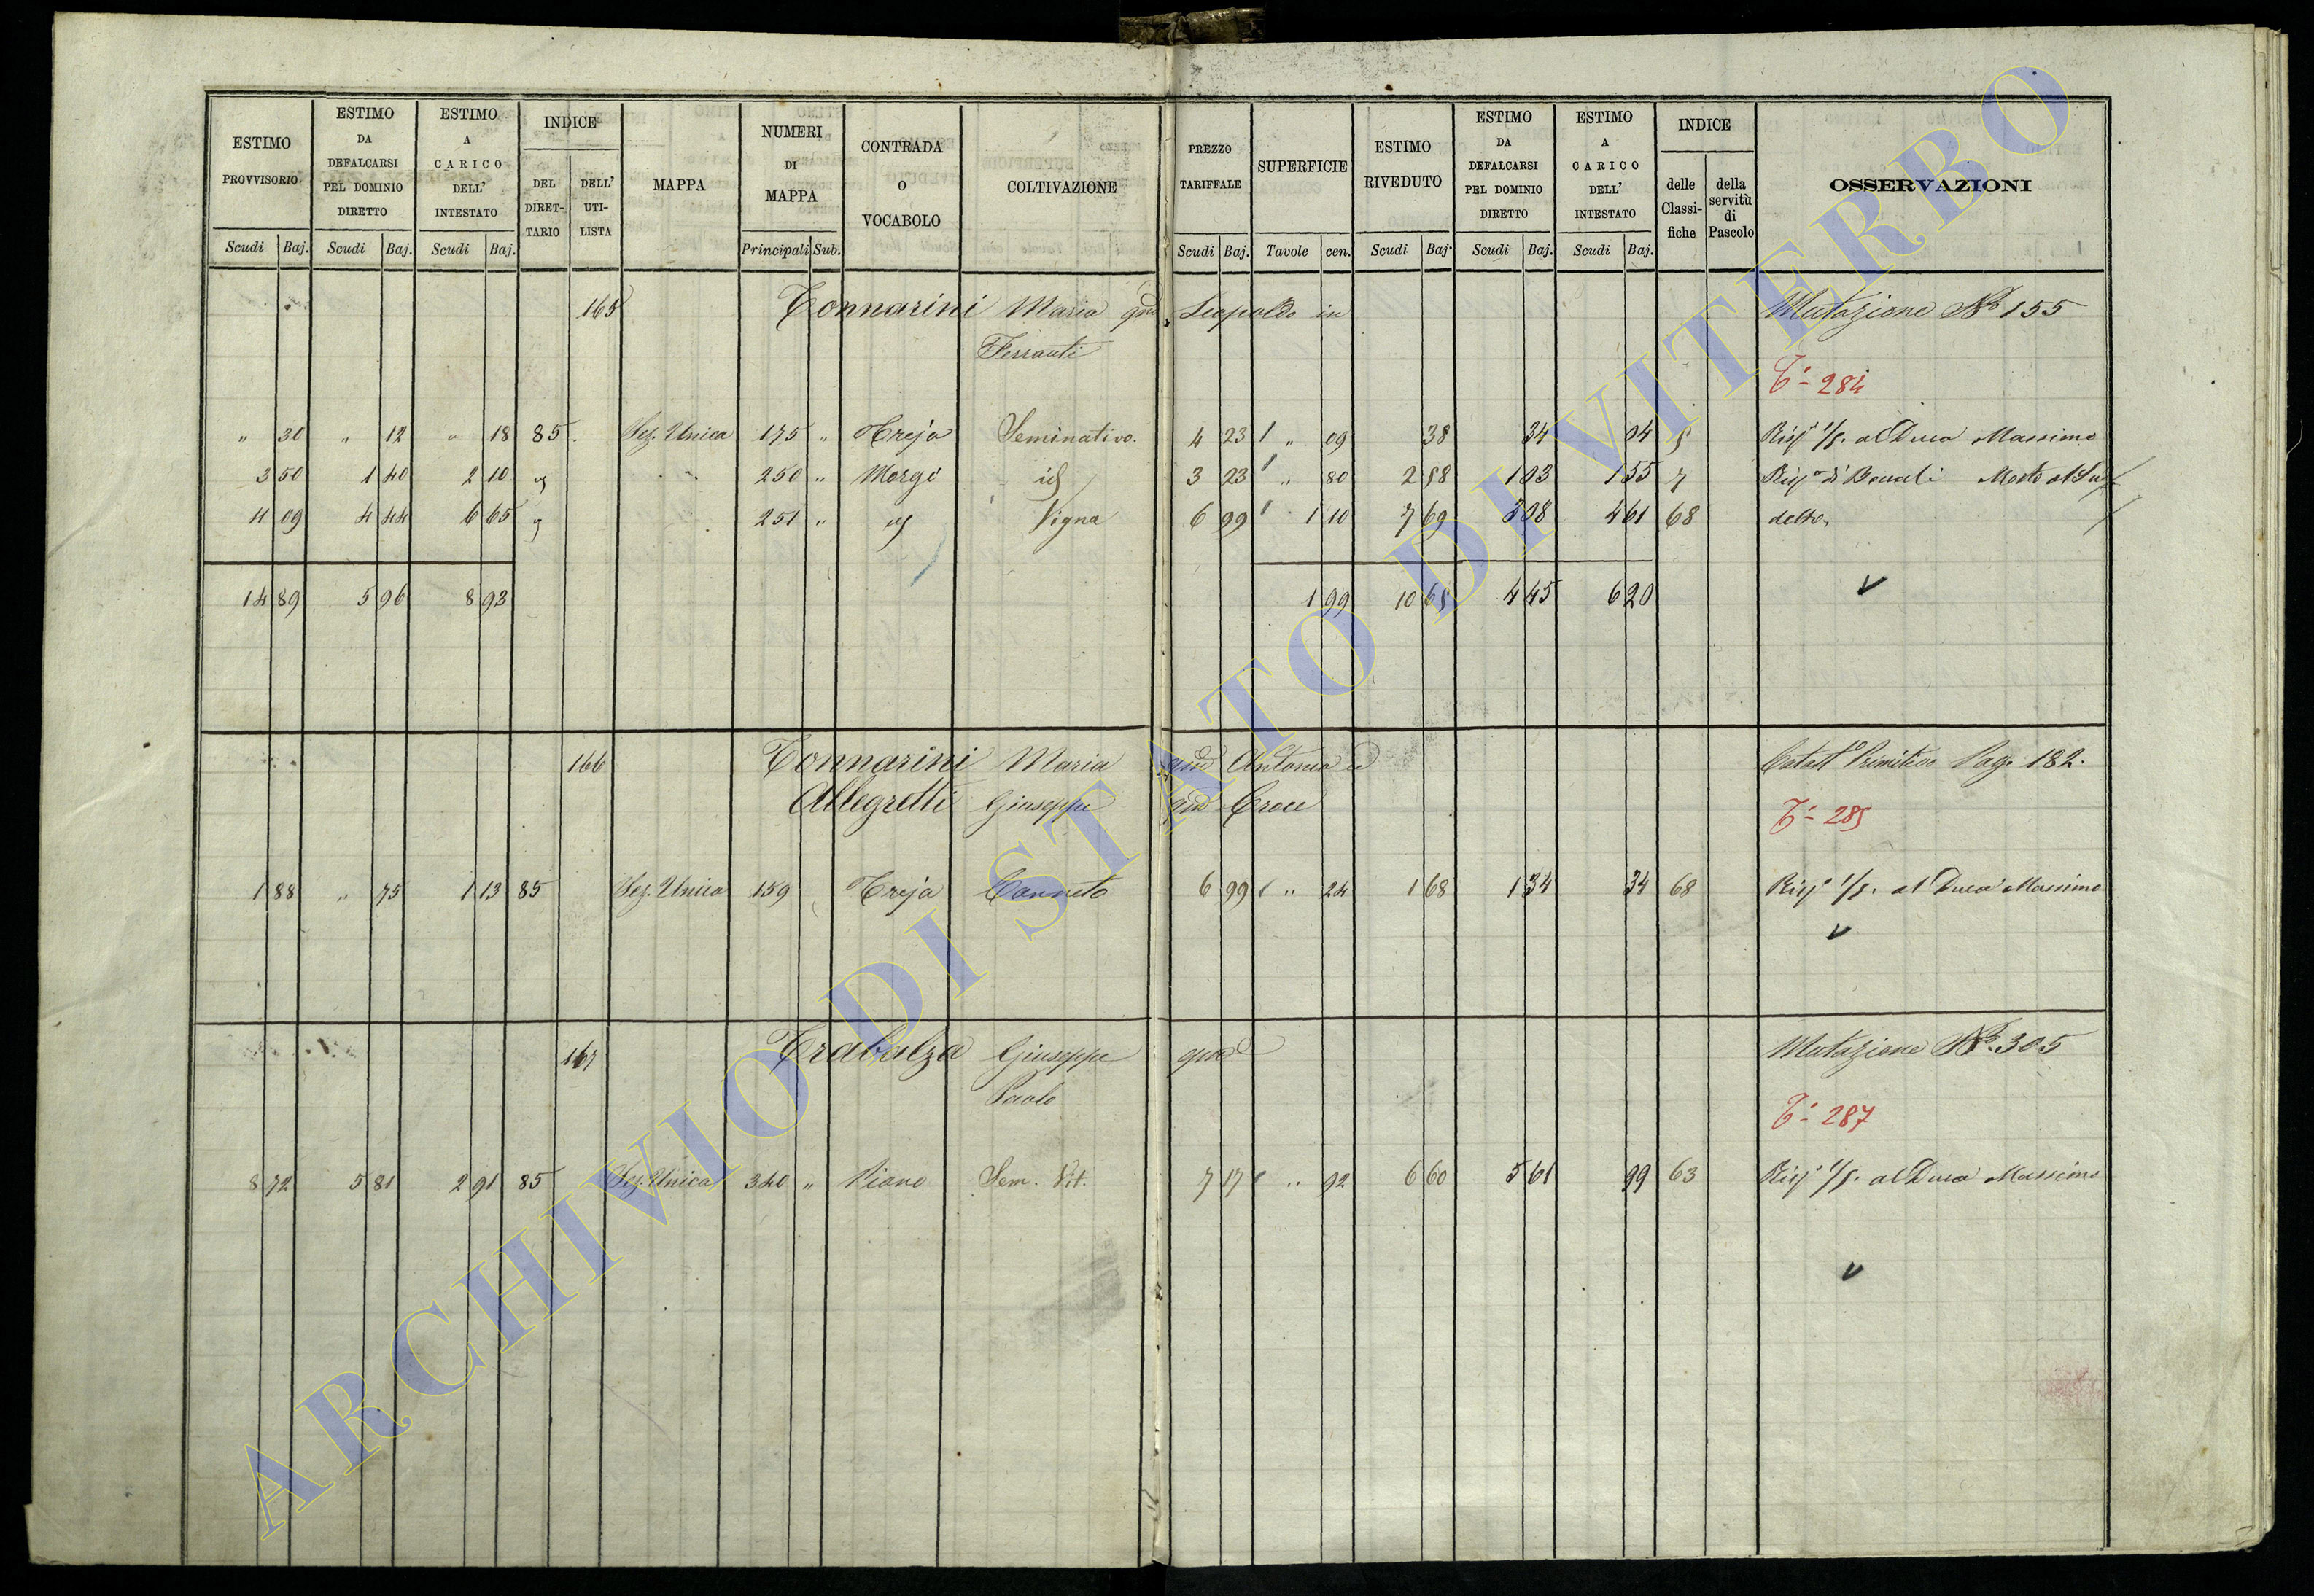 ESTIMO PROVVISORIO
ESTIMO DA DEFALCARSI PEL DOMINIO DIRETTO
ESTIMO A CARICO DELL' INTESTATO
INDICE
DEL DIRET-TARIO
DELL' UTI-LISTA
MAPPA
NUMERI DI MAPPA
CONTRADA O VOCABOLO
COLTIVAZIONE
PREZZO TARIFFALE
SUPERFICIE
ESTIMO RIVEDUTO
ESTIMO DA DEFALCARSI PEL DOMINIO DIRETTO
ESTIMO A CARICO DELL' INTESTATO
INDICE
delle Classi-fiche
della servitù di Pascolo
OSSERVAZIONI
Scudi Baj. Scudi Baj. Scudi Baj. Principali Sub. Scudi Baj. Tavole cen. Scudi Baj. Scudi Baj. Scudi Baj.
165 Tonnarini Maria qm Leopoldo in Mutazione No 155
Ferranti
T - 284
" 30 " 12 " 18 85. Sez. Unica 175 " Treja Seminativo. 4 23 " 09 38 34 04 Risp 1/5. al Duca Massimo
3 50 1 40 2 10 250 " Morgi id 3 23 " 80 2 58 1 03 1 55 7
11 09 4 44 6 65 251 " Vigna 6 99 1 10 7 69 3 08 4 61 68 detto.
14 89 5 96 8 93 1 99 10 65 4 45 6 20
166 Tonnarini Maria qm Antonio ed Catast Primitivo Pag. 182.
Allegretti Giuseppe qm Croce
T - 285
1 88 " 75 1 13 85 Sez. Unica 159 Treja Canneto 6 99 " 24 1 68 1 34 34 68 Risp 1/5. al Duca Massimo
167 Trabalza Giuseppe qm Mutazione No. 305
Paolo
T - 287
8 72 5 81 2 91 85 Sez. Unica 340 " Piano Sem. Vit. 7 17 " 92 6 60 5 61 99 63 Risp 1/5. al Duca Massimo
ARCHIVIO DI STATO DI VITERBO